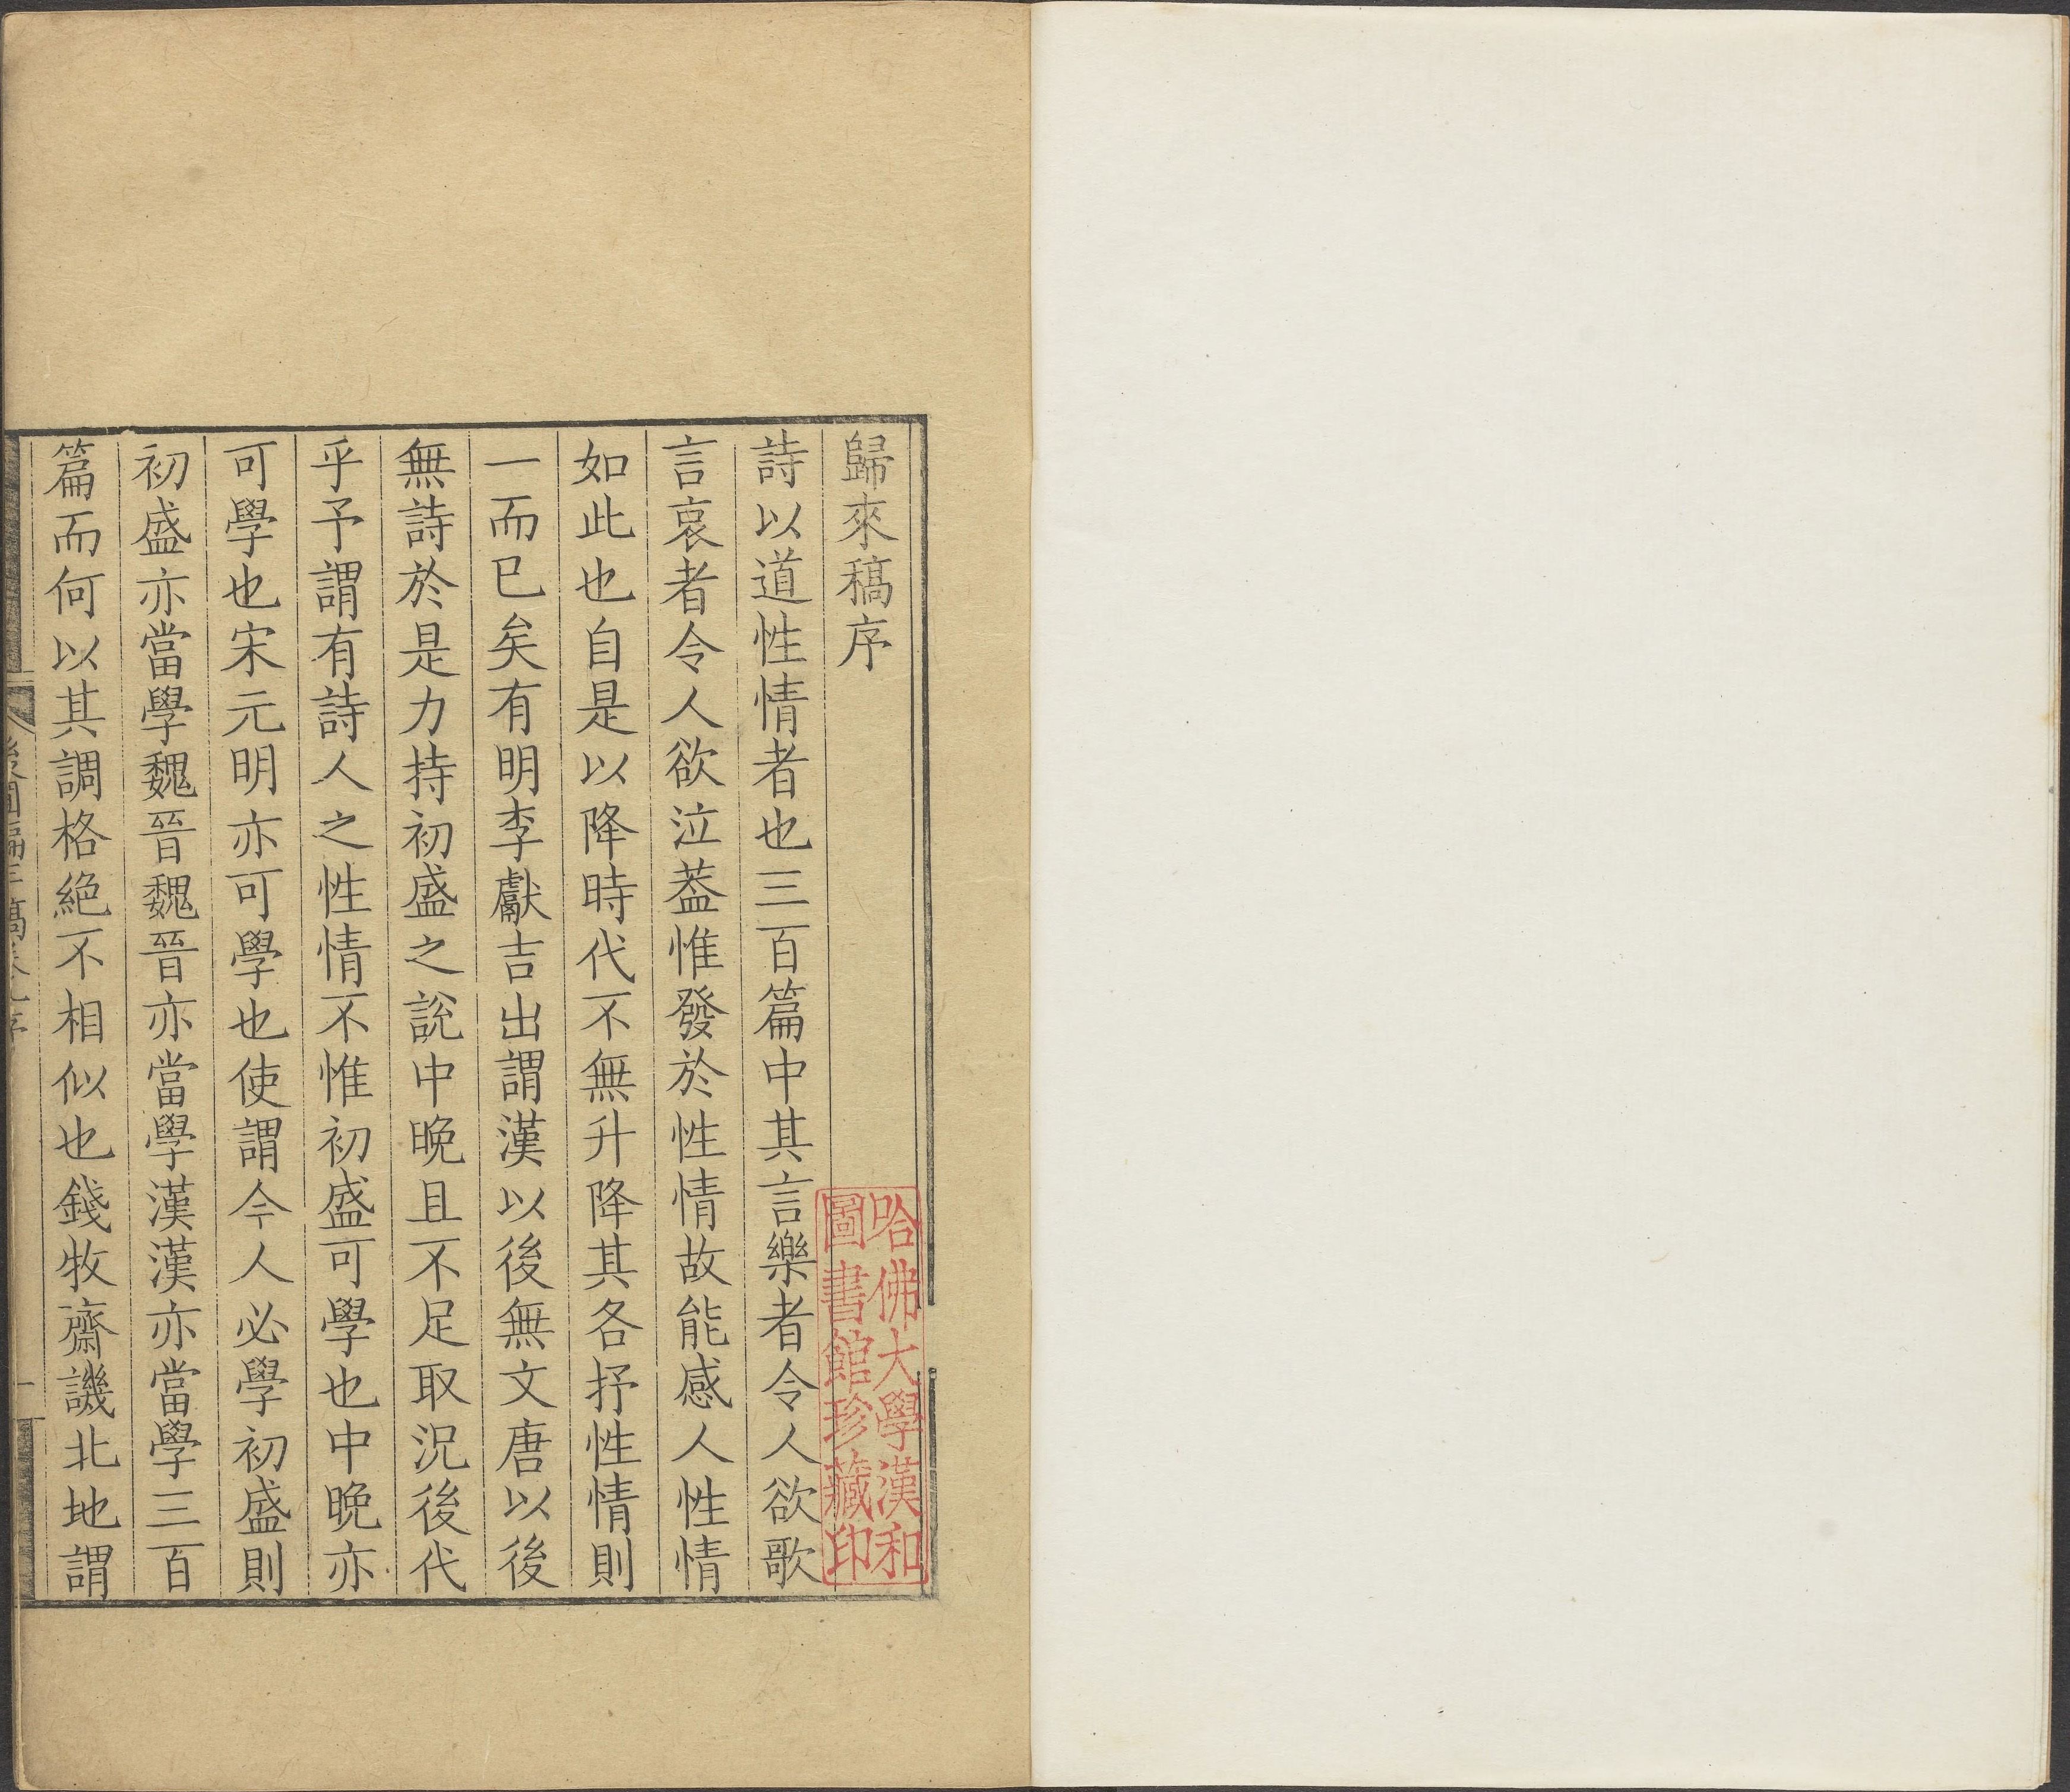 歸來稿序
詩以道性情者也三百篇中其言樂者令人欲歌
言哀者令人欲泣葢惟發於性情故能感人性情
如此也自是以降時代不無升降其各抒性情則
一而已矣有明李獻吉出謂漢以後無文唐以後
無詩於是力持初盛之說中晚且不足取況後代
乎予謂有詩人之性情不惟初盛可學也中晚亦
可學也宋元明亦可學也使謂今人必學初盛則
初盛亦當學魏晉魏晉亦當學漢漢亦當學三百
篇而何以其調格絕不相似也錢牧齋譏北地謂
哈佛大學漢和
圖書館珍藏印